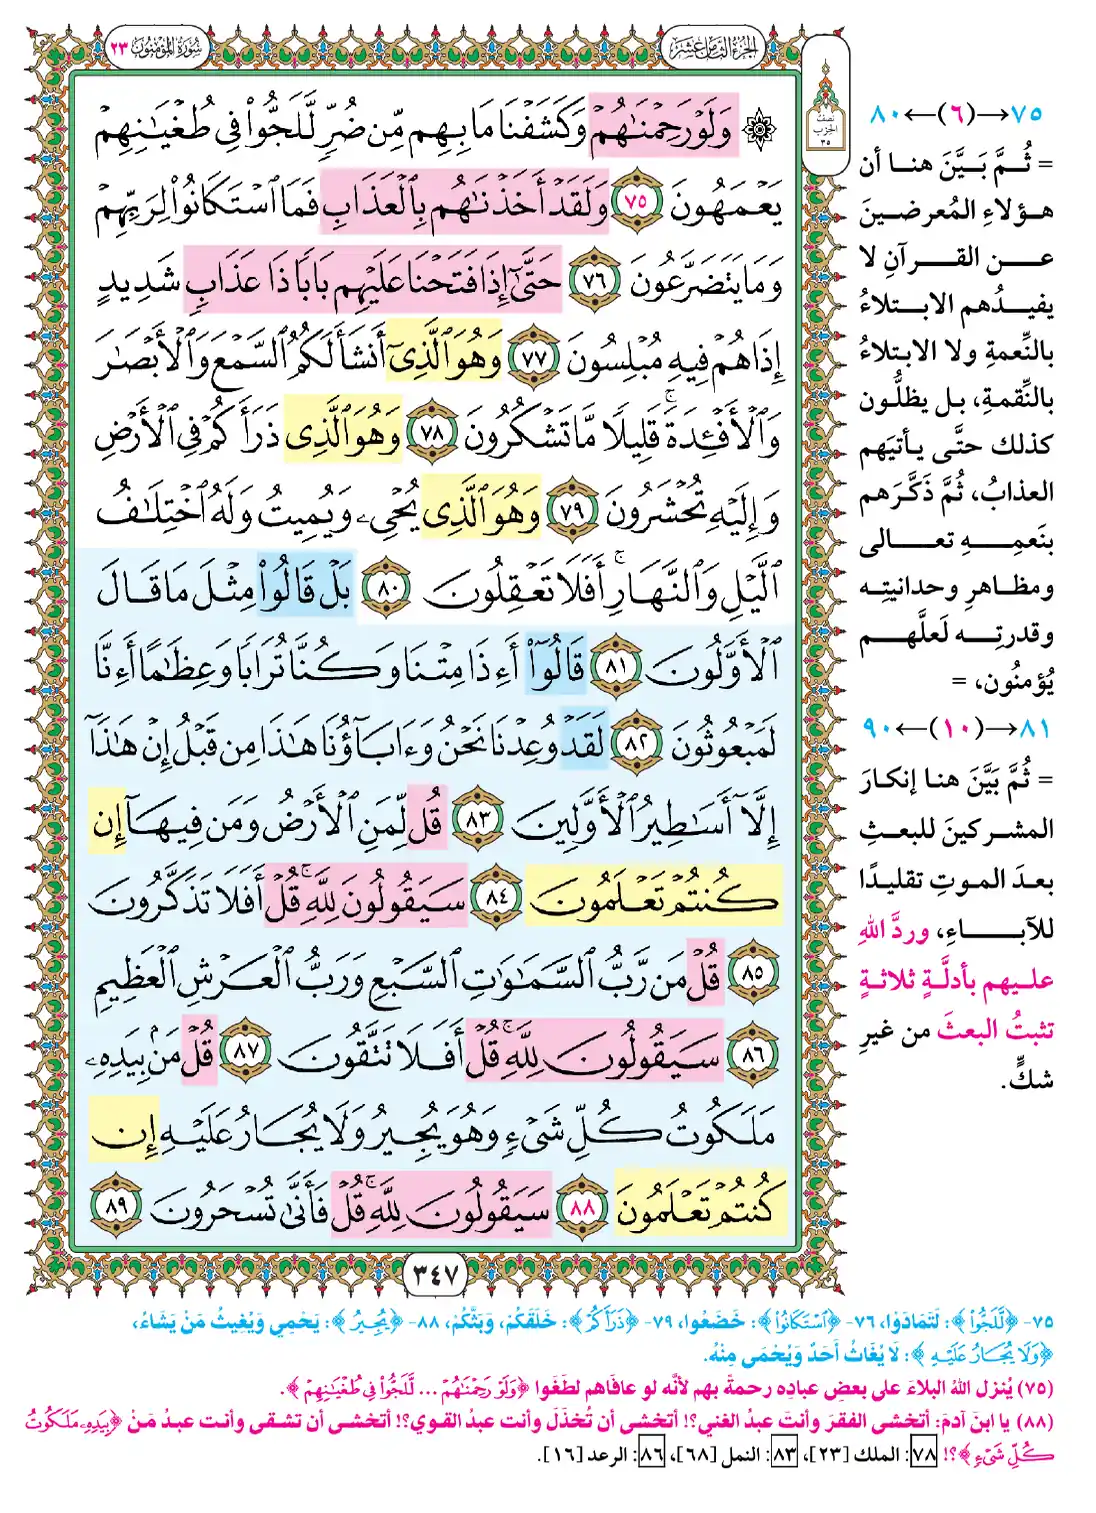 الجزء الثامن عشر
سورة المؤمنون ٢٣
نصف
الحزب
٣٥
۞ وَلَوْ رَحِمْنَٰهُمْ وَكَشَفْنَا مَا بِهِم مِّن ضُرٍّ لَّلَجُّوا۟ فِى طُغْيَٰنِهِمْ
يَعْمَهُونَ ٧٥ وَلَقَدْ أَخَذْنَٰهُم بِٱلْعَذَابِ فَمَا ٱسْتَكَانُوا۟ لِرَبِّهِمْ
وَمَا يَتَضَرَّعُونَ ٧٦ حَتَّىٰٓ إِذَا فَتَحْنَا عَلَيْهِم بَابًا ذَا عَذَابٍ شَدِيدٍ
إِذَا هُمْ فِيهِ مُبْلِسُونَ ٧٧ وَهُوَ ٱلَّذِىٓ أَنشَأَ لَكُمُ ٱلسَّمْعَ وَٱلْأَبْصَٰرَ
وَٱلْأَفْـِٔدَةَ ۚ قَلِيلًا مَّا تَشْكُرُونَ ٧٨ وَهُوَ ٱلَّذِى ذَرَأَكُمْ فِى ٱلْأَرْضِ
وَإِلَيْهِ تُحْشَرُونَ ٧٩ وَهُوَ ٱلَّذِى يُحْىِۦ وَيُمِيتُ وَلَهُ ٱخْتِلَٰفُ
ٱلَّيْلِ وَٱلنَّهَارِ ۚ أَفَلَا تَعْقِلُونَ ٨٠ بَلْ قَالُوا۟ مِثْلَ مَا قَالَ
ٱلْأَوَّلُونَ ٨١ قَالُوٓا۟ أَءِذَا مِتْنَا وَكُنَّا تُرَابًا وَعِظَٰمًا أَءِنَّا
لَمَبْعُوثُونَ ٨٢ لَقَدْ وُعِدْنَا نَحْنُ وَءَابَآؤُنَا هَٰذَا مِن قَبْلُ إِنْ هَٰذَآ
إِلَّآ أَسَٰطِيرُ ٱلْأَوَّلِينَ ٨٣ قُل لِّمَنِ ٱلْأَرْضُ وَمَن فِيهَآ إِن
كُنتُمْ تَعْلَمُونَ ٨٤ سَيَقُولُونَ لِلَّهِ ۚ قُلْ أَفَلَا تَذَكَّرُونَ
٨٥ قُلْ مَن رَّبُّ ٱلسَّمَٰوَٰتِ ٱلسَّبْعِ وَرَبُّ ٱلْعَرْشِ ٱلْعَظِيمِ
٨٦ سَيَقُولُونَ لِلَّهِ ۚ قُلْ أَفَلَا تَتَّقُونَ ٨٧ قُلْ مَنۢ بِيَدِهِۦ
مَلَكُوتُ كُلِّ شَىْءٍ وَهُوَ يُجِيرُ وَلَا يُجَارُ عَلَيْهِ إِن
كُنتُمْ تَعْلَمُونَ ٨٨ سَيَقُولُونَ لِلَّهِ ۚ قُلْ فَأَنَّىٰ تُسْحَرُونَ ٨٩
٣٤٧
٧٥→(٦)←٨٠
= ثُمَّ بَيَّنَ هنا أن
هؤلاءِ المُعرضينَ
عن القرآنِ لا
يفيدُهم الابتلاءُ
بالنِّعمةِ ولا الابتلاءُ
بالنِّقمةِ، بل يظلُّون
كذلك حتَّى يأتيَهم
العذابُ، ثُمَّ ذَكَّرَهم
بنَعمِهِ تعالى
ومظاهرِ وحدانيتِه
وقدرتِه لَعلَّهم
يُؤمنُون، =
٨١→(١٠)←٩٠
= ثُمَّ بَيَّنَ هنا إنكارَ
المشركينَ للبعثِ
بعدَ الموتِ تقليدًا
للآباءِ، وردَّ اللهُ
عليهم بأدلَّةٍ ثلاثةٍ
تثبتُ البعثَ من غيرِ
شكٍّ.
٧٥- ﴿لَّلَجُّوا۟﴾: لَتَمَادَوْا، ٧٦- ﴿ٱسْتَكَانُوا۟﴾: خَضَعُوا، ٧٩- ﴿ذَرَأَكُمْ﴾: خَلَقَكُمْ، وَبَثَّكُمْ، ٨٨- ﴿يُجِيرُ﴾: يَحْمِي وَيُغِيثُ مَنْ يَشَاءُ،
﴿وَلَا يُجَارُ عَلَيْهِ﴾: لَا يُغَاثُ أَحَدٌ وَيُحْمَى مِنْهُ.
(٧٥) يُنزل اللهُ البلاءَ على بعضِ عبادِه رحمةً بهم لأنَّه لو عافَاهم لطَغَوا ﴿وَلَوْ رَحِمْنَٰهُمْ ... لَّلَجُّوا۟ فِى طُغْيَٰنِهِمْ﴾.
(٨٨) يا ابنَ آدمَ: أتخشى الفقرَ وأنتَ عبدُ الغني؟! أتخشى أن تُخذَلَ وأنت عبدُ القوي؟! أتخشى أن تشقى وأنت عبدُ مَنْ ﴿بِيَدِهِۦ مَلَكُوتُ
كُلِّ شَىْءٍ﴾؟! ٧٨: الملك [٢٣]، ٨٣: النمل [٦٨]، ٨٦: الرعد [١٦].